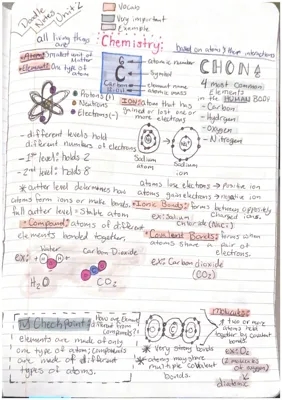 Doodle Notes Unit 2
Vocab
Very important
Example
Chemistry:
based on atoms & their interactions
all living things are
Atoms: Smallest unit of Matter
Elements: One type of atom
6
C
Carbon
atomic number
Symbol
element name
atomic mass
CHON
4 most common Elements in the HUMAN BODY
- Carbon
- Hydrogen
- Oxygen
- Nitrogen
Protons (+)
Neutrons
Electrons (-)
ION: Atom that has gained or lost one or more electrons
Sodium atom
Sodium ion
- different levels hold different numbers of electrons
- 1st level: holds 2
- 2nd level: holds 8
* Outter level determines how atoms form ions or make bonds.
full outter level = Stable atom
atoms lose electrons → positive ion
atoms gain electrons → negative ion
• Ionic Bonds: forms between oppositely Charged ions.
ex: Sodium Chloride (NaCl)
• Compound: atoms of different elements bonded together.
• Covalent Bonds: forms when atoms share a pair of electrons.
ex: Carbon dioxide (CO2)
ex:
Water
H2O
Carbon Dioxide
CO2
Checkpoint: How are Elements different from Compounds?
elements are made of only one type of atom; compounds are made of different types of atoms.
* Very strong bonds
* atoms may share multiple covalent bonds.
molecules:
2 or more atoms held together by covalent bonds
ex: O2
(2 molecules of oxygen)
diatomic